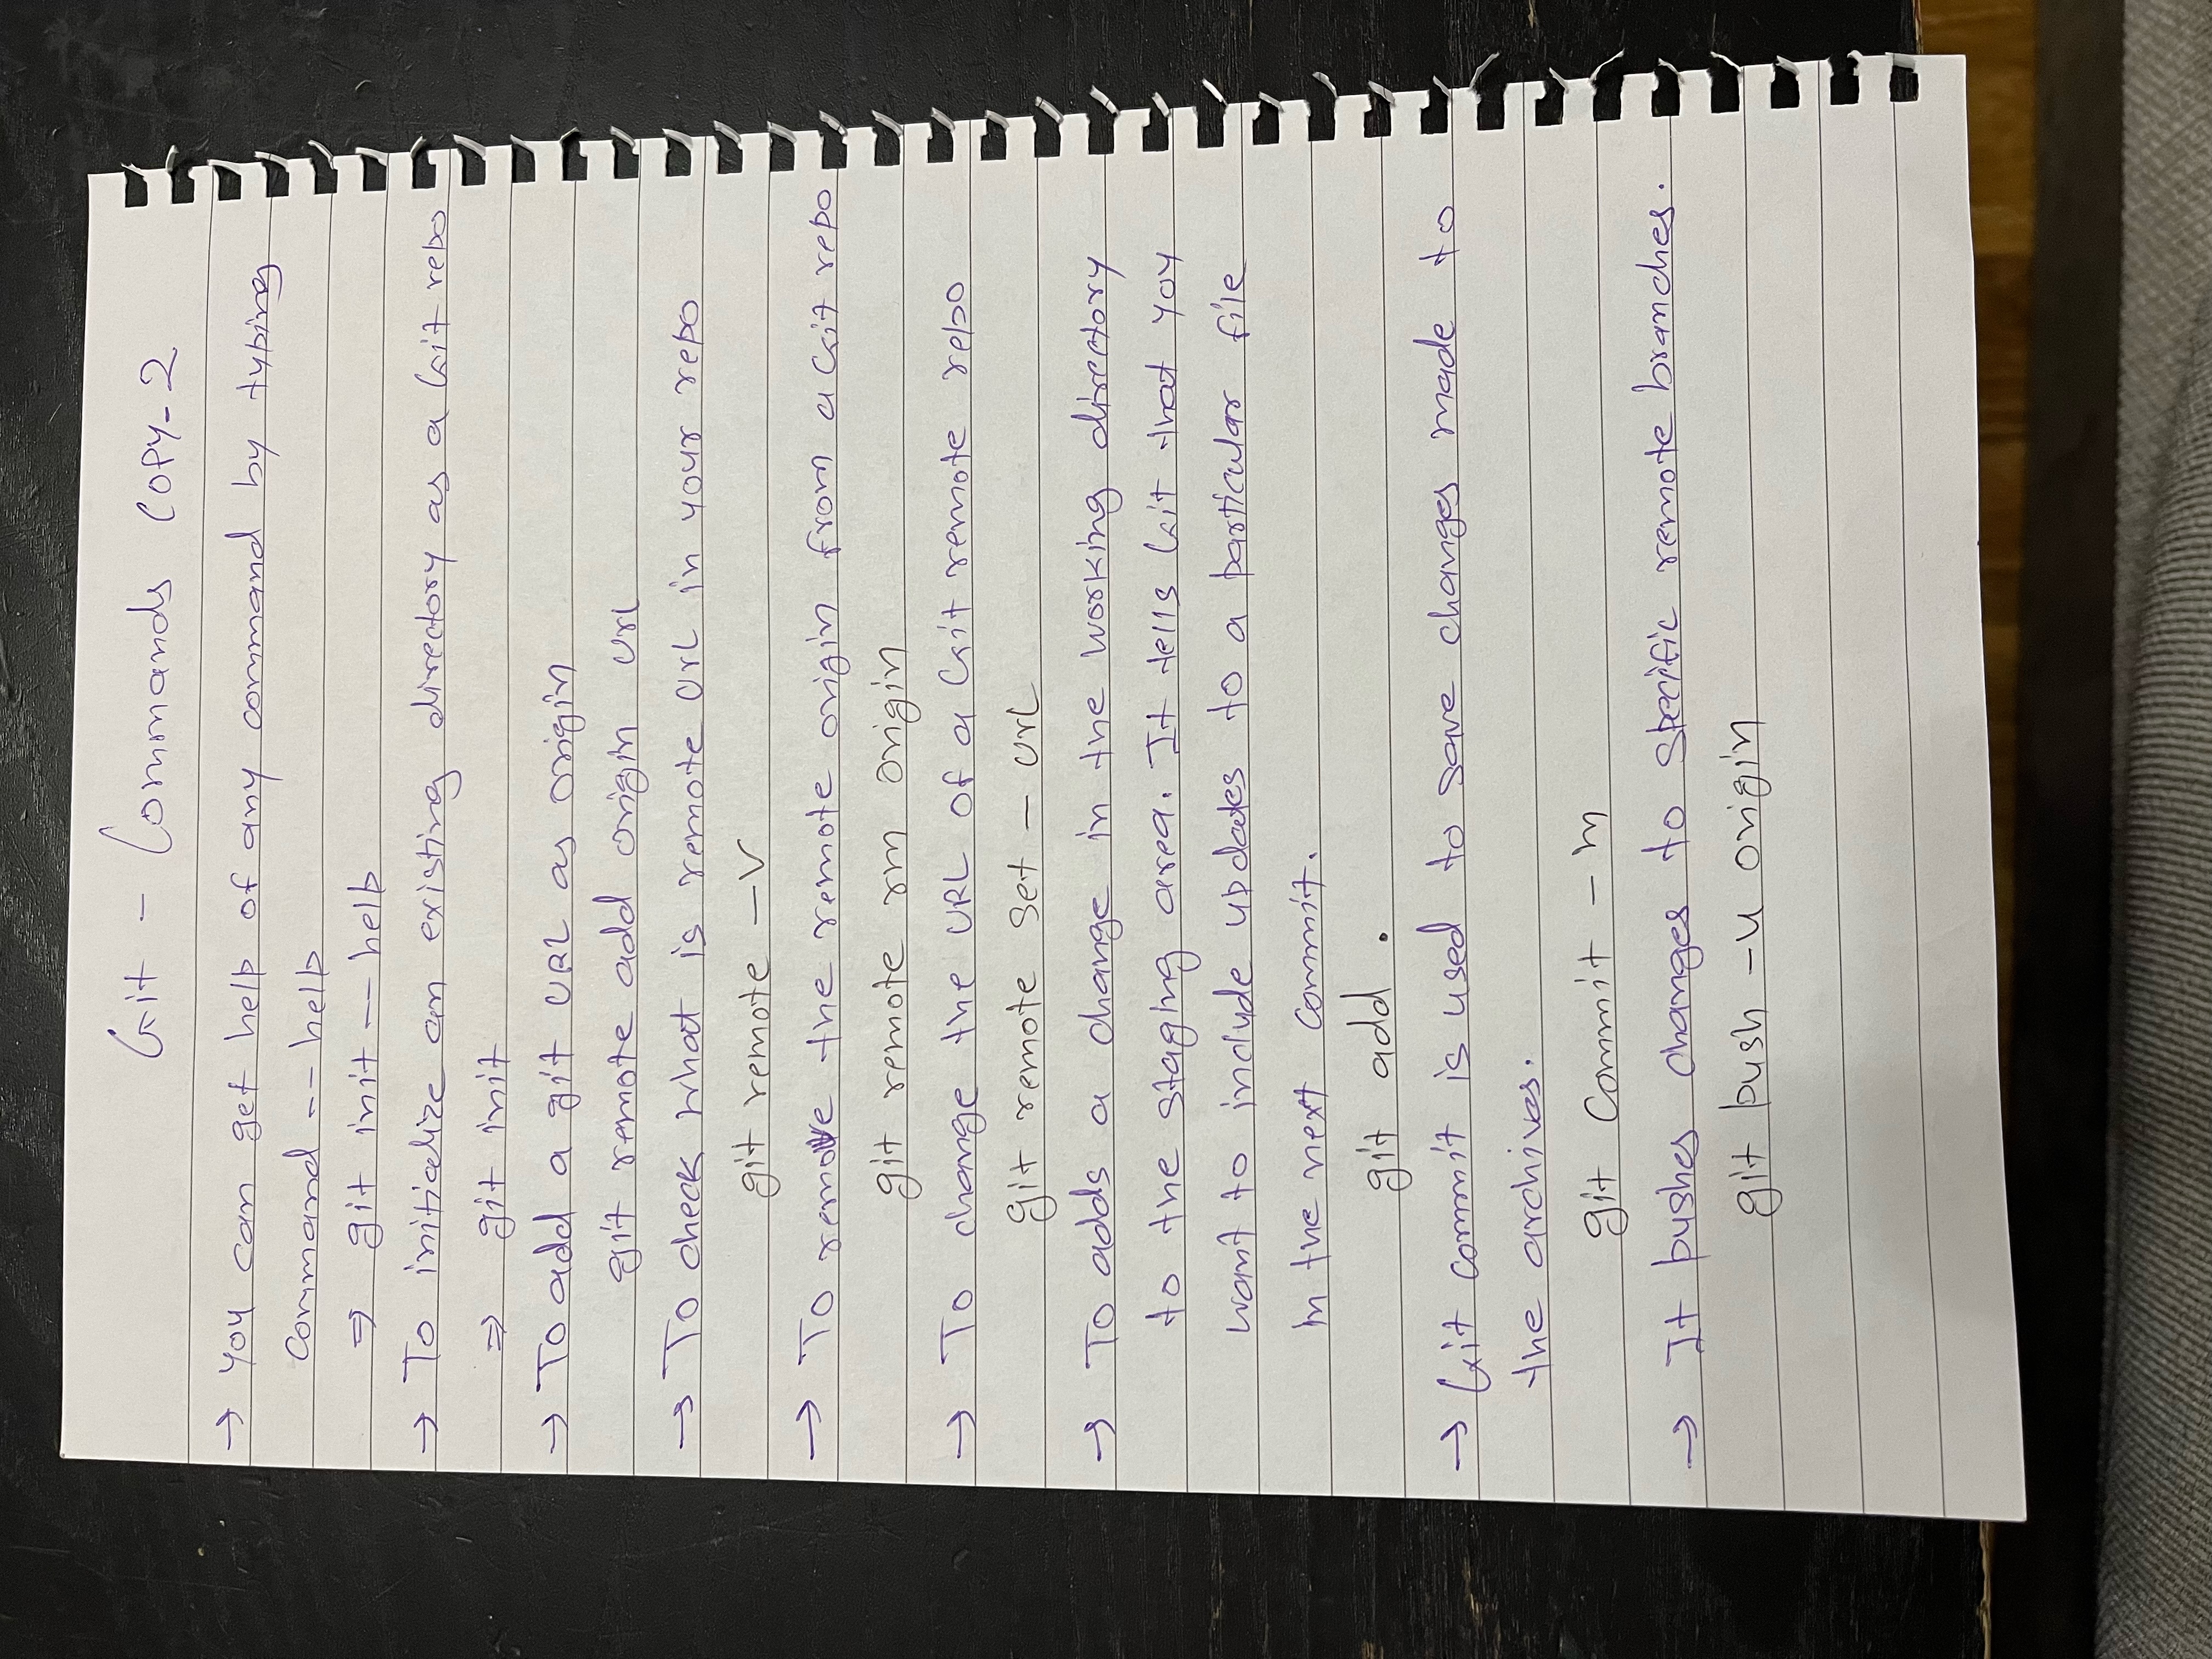 Git - Commands COPY-2
→ You can get help of any command by typing
command -- help
⇒ git init -- help
→ To initialize an existing directory as a Git repo
⇒ git init
→ To add a git URL as origin
git remote add origin url
→ To check what is remote url in your repo
git remote -v
→ To remove the remote origin from a Git repo
git remote rm origin
→ To change the URL of a Git remote repo
git remote set - url
→ To adds a change in the working directory
to the staging area. It tells Git that you
want to include updates to a particular file
in the next commit.
git add .
→ Git commit is used to save changes made to
the archives.
git commit - m
→ It pushes changes to specific remote branches.
git push -u origin